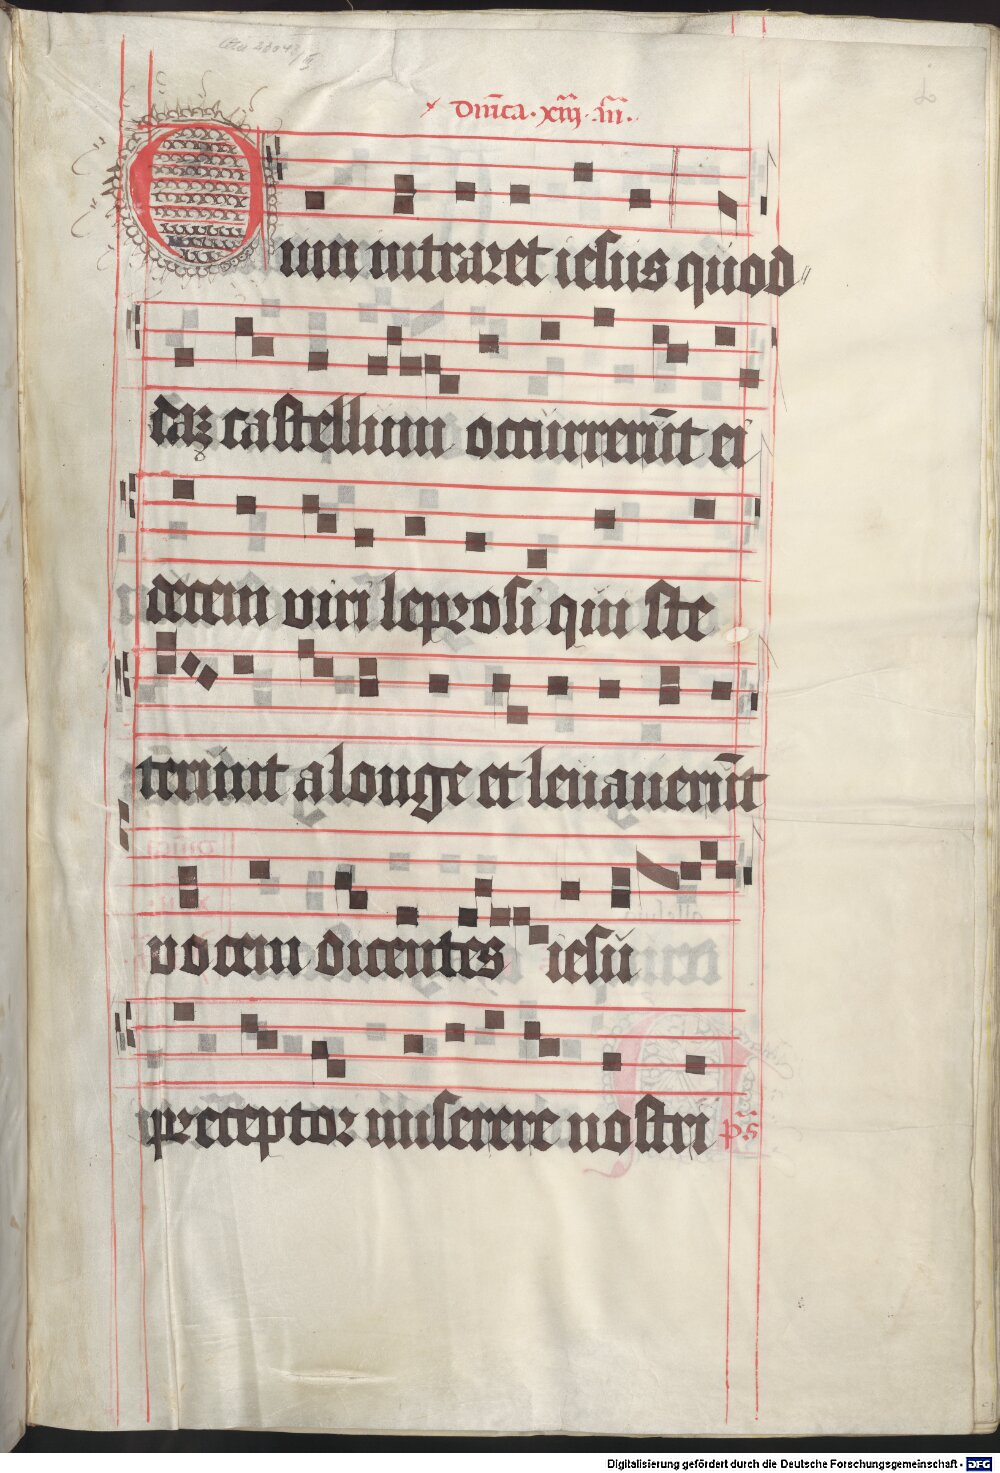 dnīca · xiiij · an̄ ·
Cum intraret iesus quod
daꝫ castellum occurrerūt ei
decem viri leprosi qui ste
terunt a longe et leuauerūt
uocem dicentes iesu
preceptor miserere nostri p̄s
Digitalisierung gefördert durch die Deutsche Forschungsgemeinschaft - DFG